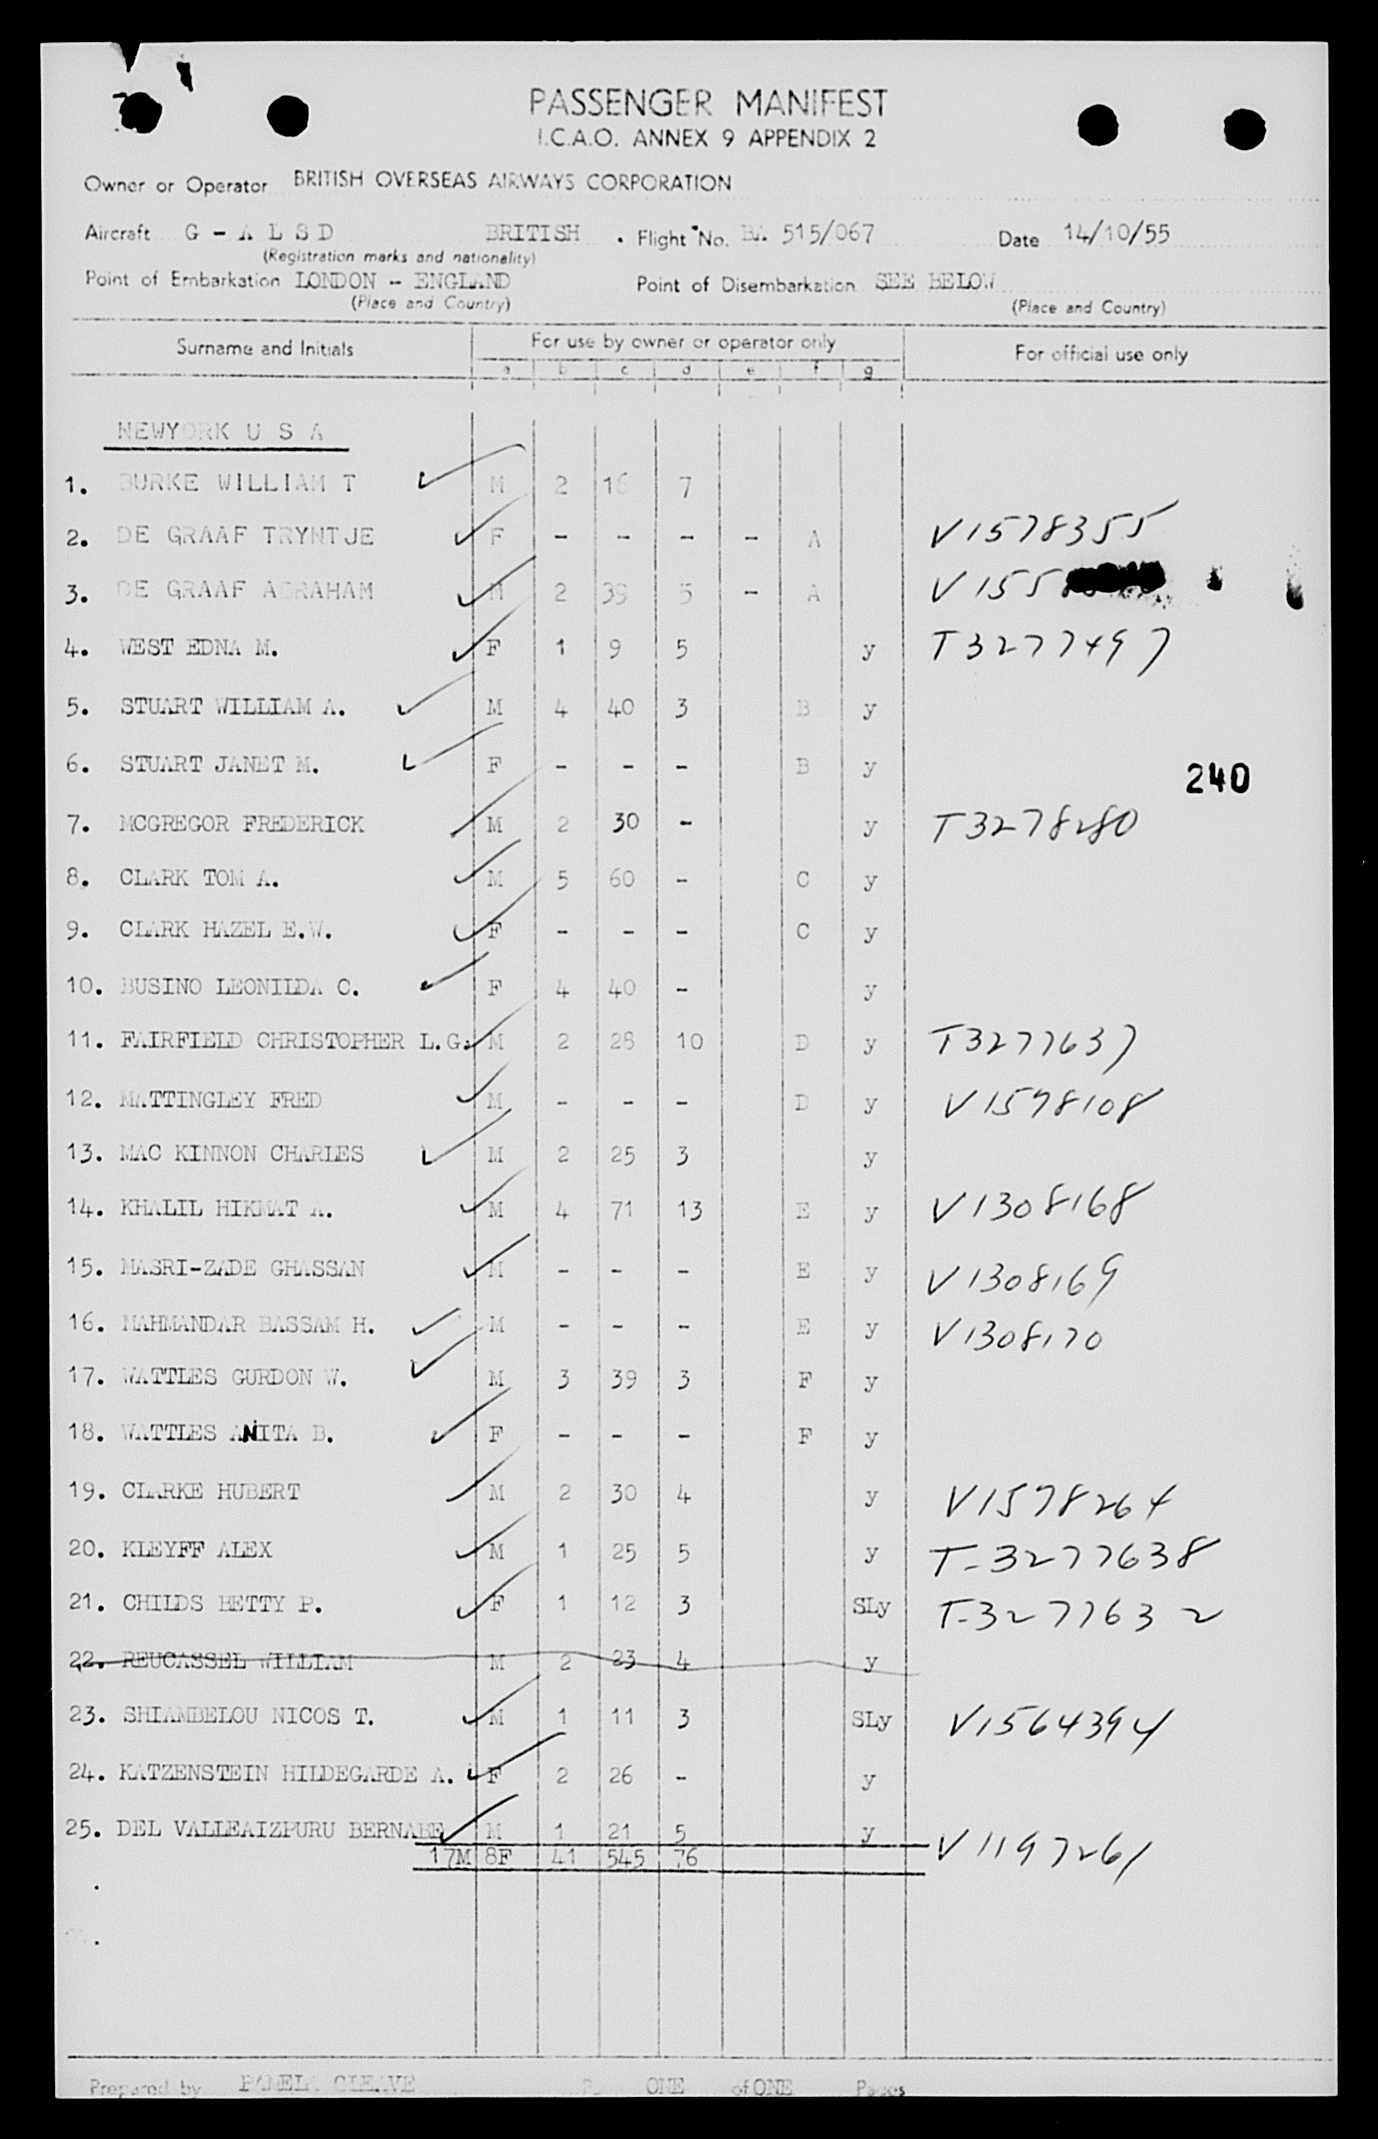 PASSENGER MANIFEST
I.C.A.O. ANNEX 9 APPENDIX 2
Owner or Operator BRITISH OVERSEAS AIRWAYS CORPORATION
Aircraft G - A L S D BRITISH . Flight No. BA 515/067 Date 14/10/55
(Registration marks and nationality)
Point of Embarkation LONDON - ENGLAND Point of Disembarkation SEE BELOW
(Place and Country) (Place and Country)
Surname and Initials For use by owner or operator only For official use only
a b c d e f g
NEWYORK U S A
1. BURKE WILLIAM T M 2 16 7
2. DE GRAAF TRYNTJE F - - - - A V1578355
3. DE GRAAF ABRAHAM M 2 39 5 - A V 155
4. WEST EDNA M. F 1 9 5 y T3277497
5. STUART WILLIAM A. M 4 40 3 B y
6. STUART JANET M. F - - - B y
240
7. MCGREGOR FREDERICK M 2 30 - y T3278280
8. CLARK TOM A. M 5 60 - C y
9. CLARK HAZEL E.W. F - - - C y
10. BUSINO LEONILDA C. F 4 40 - y
11. FAIRFIELD CHRISTOPHER L.G. M 2 28 10 D y T3277637
12. MATTINGLEY FRED M - - - D y V1578108
13. MAC KINNON CHARLES M 2 25 3 y
14. KHALIL HIKMAT A. M 4 71 13 E y V1308168
15. MASRI-ZADE GHASSAN M - - - E y V1308169
16. MAHMANDAR BASSAM H. M - - - E y V1308170
17. WATTLES GURDON W. M 3 39 3 F y
18. WATTLES ANITA B. F - - - F y
19. CLARKE HUBERT M 2 30 4 y V1578264
20. KLEYFF ALEX M 1 25 5 y T-3277638
21. CHILDS BETTY P. F 1 12 3 SLy T-3277632
22. REUCASSEL WILLIAM M 2 23 4 y
23. SHIAMBELOU NICOS T. M 1 11 3 SLy V1564394
24. KATZENSTEIN HILDEGARDE A. F 2 26 - y
25. DEL VALLEAIZPURU BERNABE M 1 21 5 y V1197261
17M 8F 41 545 76
Prepared by PAMELA CLEAVE ONE of ONE Pages